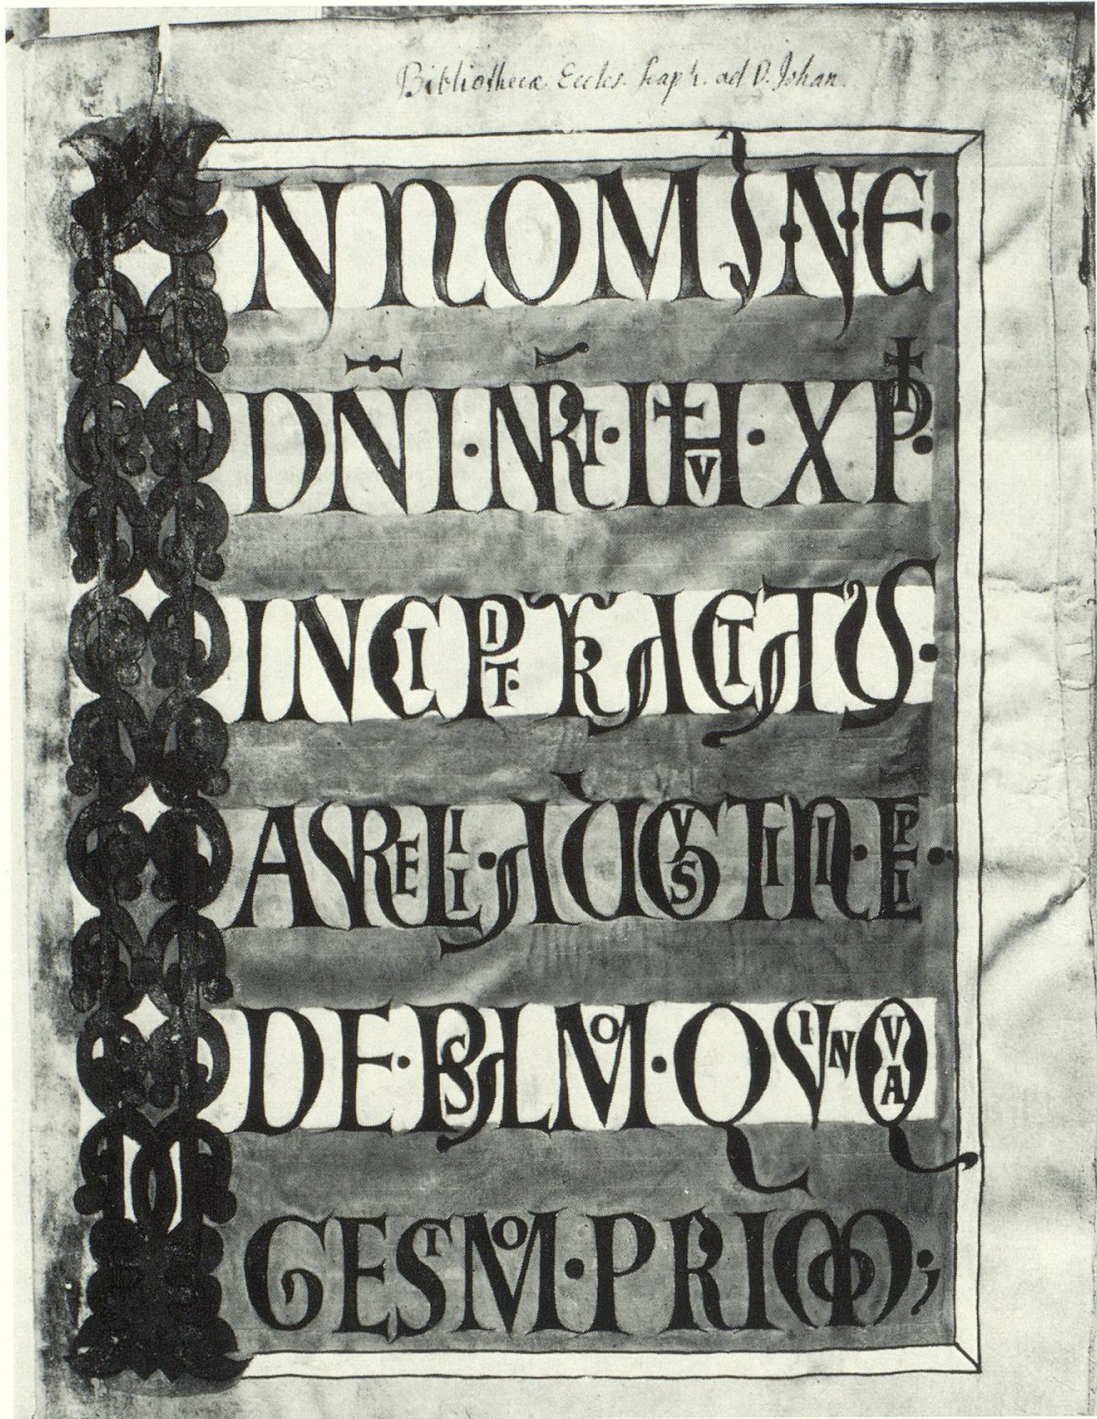 Bibliotheca Eccles. Scaph. ad D. Johan.
IN NOMINE·
DN̄I·NR̄I·IHV·XP̄I·
INCIPIT·TRACTATUS·
AVRELII·AUGUSTINI·EPI·
DE·PSALMO·QVINQVA
GESIMO·PRIMO;